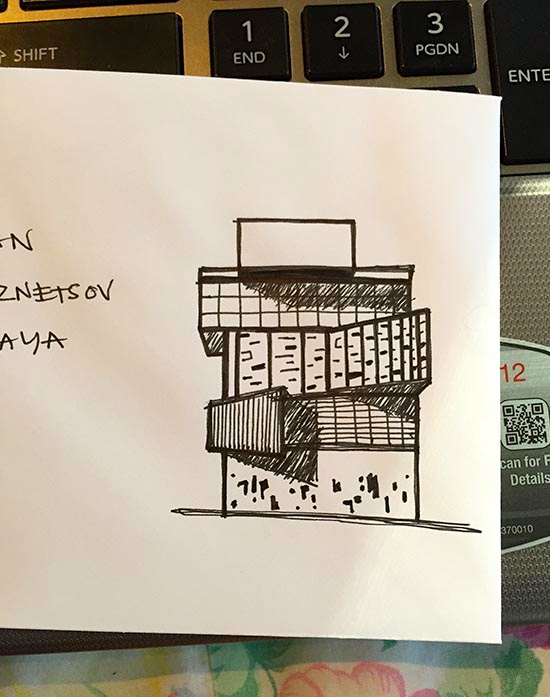 SHIFT
1 END
2 ↓
3 PGDN
ENTE
AN
ZNETSOV
AYA
12
can for F
Details
370010